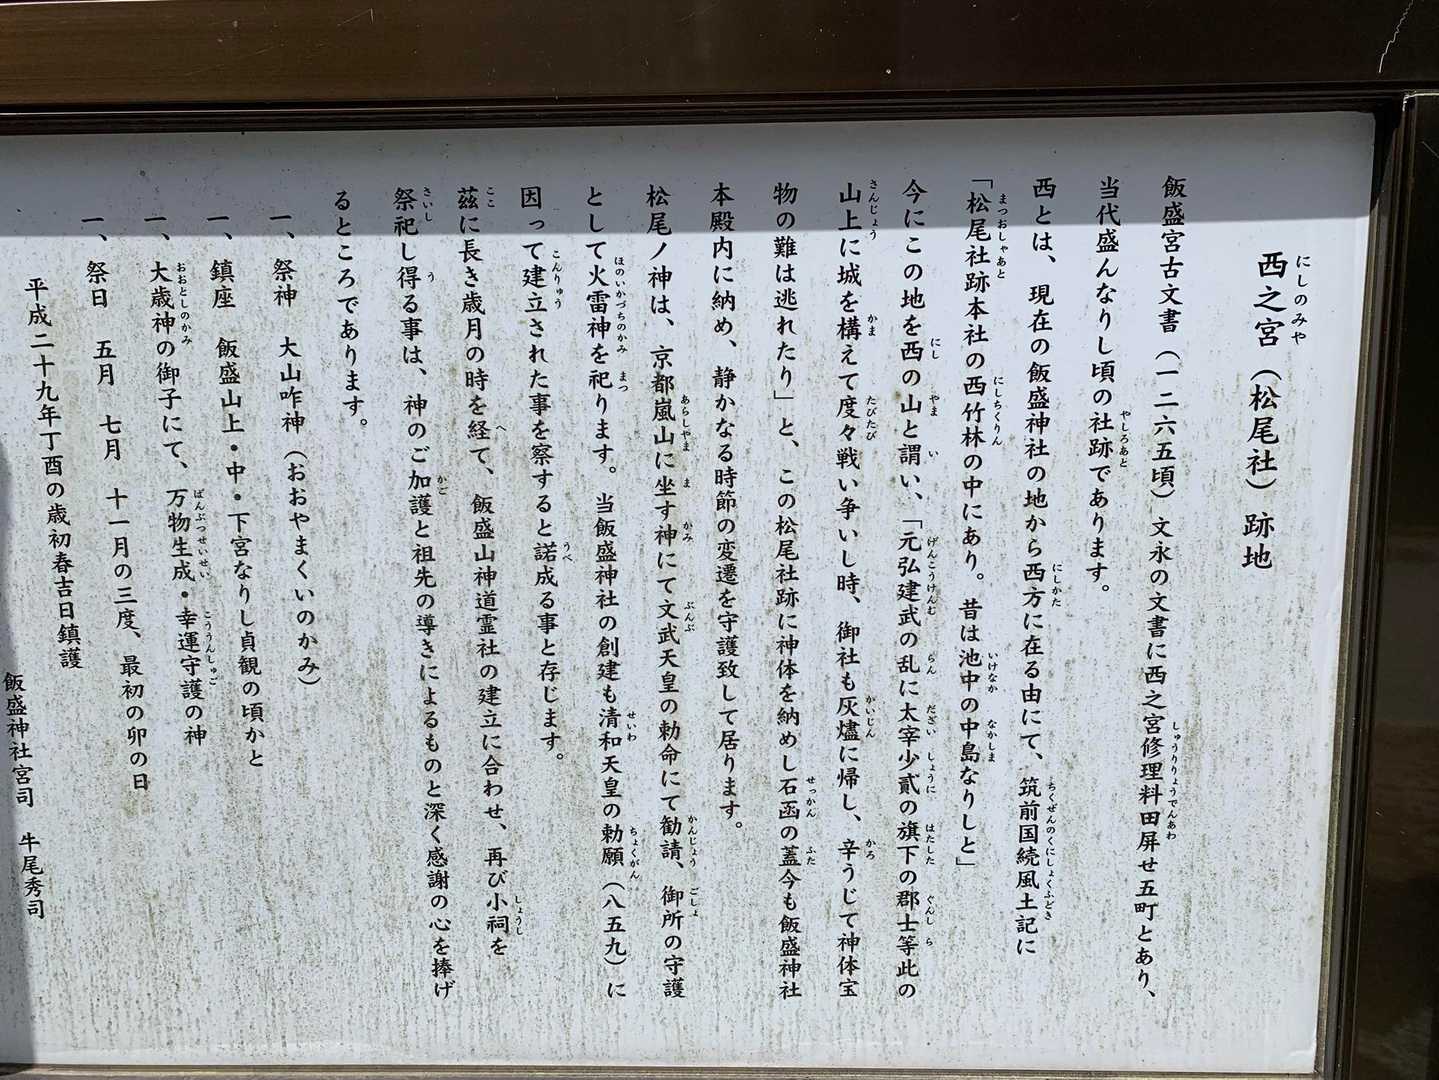 西之宮（松尾社）跡地
飯盛宮古文書（一二六五頃）文永の文書に西之宮修理料田屏せ五町とあり、
当代盛んなりし頃の社跡であります。
西とは、現在の飯盛神社の地から西方に在る由にて、筑前国続風土記に
「松尾社跡本社の西竹林の中にあり。昔は池中の中島なりしと」
今にこの地を西の山と謂い、「元弘建武の乱に太宰少貳の旗下の郡士等此の
山上に城を構えて度々戦い争いし時、御社も灰燼に帰し、辛うじて神体宝
物の難は逃れたり」と、この松尾社跡に神体を納めし石函の蓋今も飯盛神社
本殿内に納め、静かなる時節の変遷を守護致して居ります。
松尾ノ神は、京都嵐山に坐す神にて文武天皇の勅命にて勧請、御所の守護
として火雷神を祀ります。当飯盛神社の創建も清和天皇の勅願（八五九）に
因って建立された事を察すると諾成る事と存じます。
茲に長き歳月の時を経て、飯盛山神道霊社の建立に合わせ、再び小祠を
祭祀し得る事は、神のご加護と祖先の導きによるものと深く感謝の心を捧げ
るところであります。
一、祭神　大山咋神（おおやまくいのかみ）
一、鎮座　飯盛山上・中・下宮なりし貞観の頃かと
一、大歳神の御子にて、万物生成・幸運守護の神
一、祭日　五月　七月　十一月の三度、最初の卯の日
平成二十九年丁酉の歳初春吉日鎮護
飯盛神社宮司　牛尾秀司